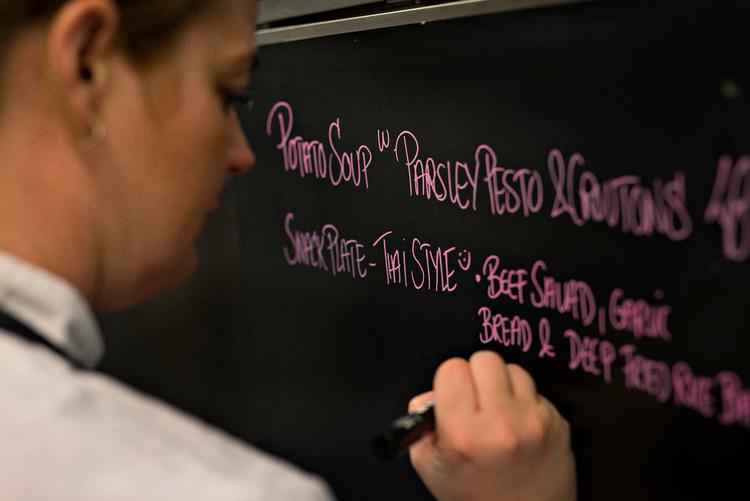 POTATO SOUP W PARSLEY PESTO & CROUTONS
SNACK PLATE - THAI STYLE ☺ • BEEF SALAD, GARLIC
BREAD & DEEP FRIED RICE